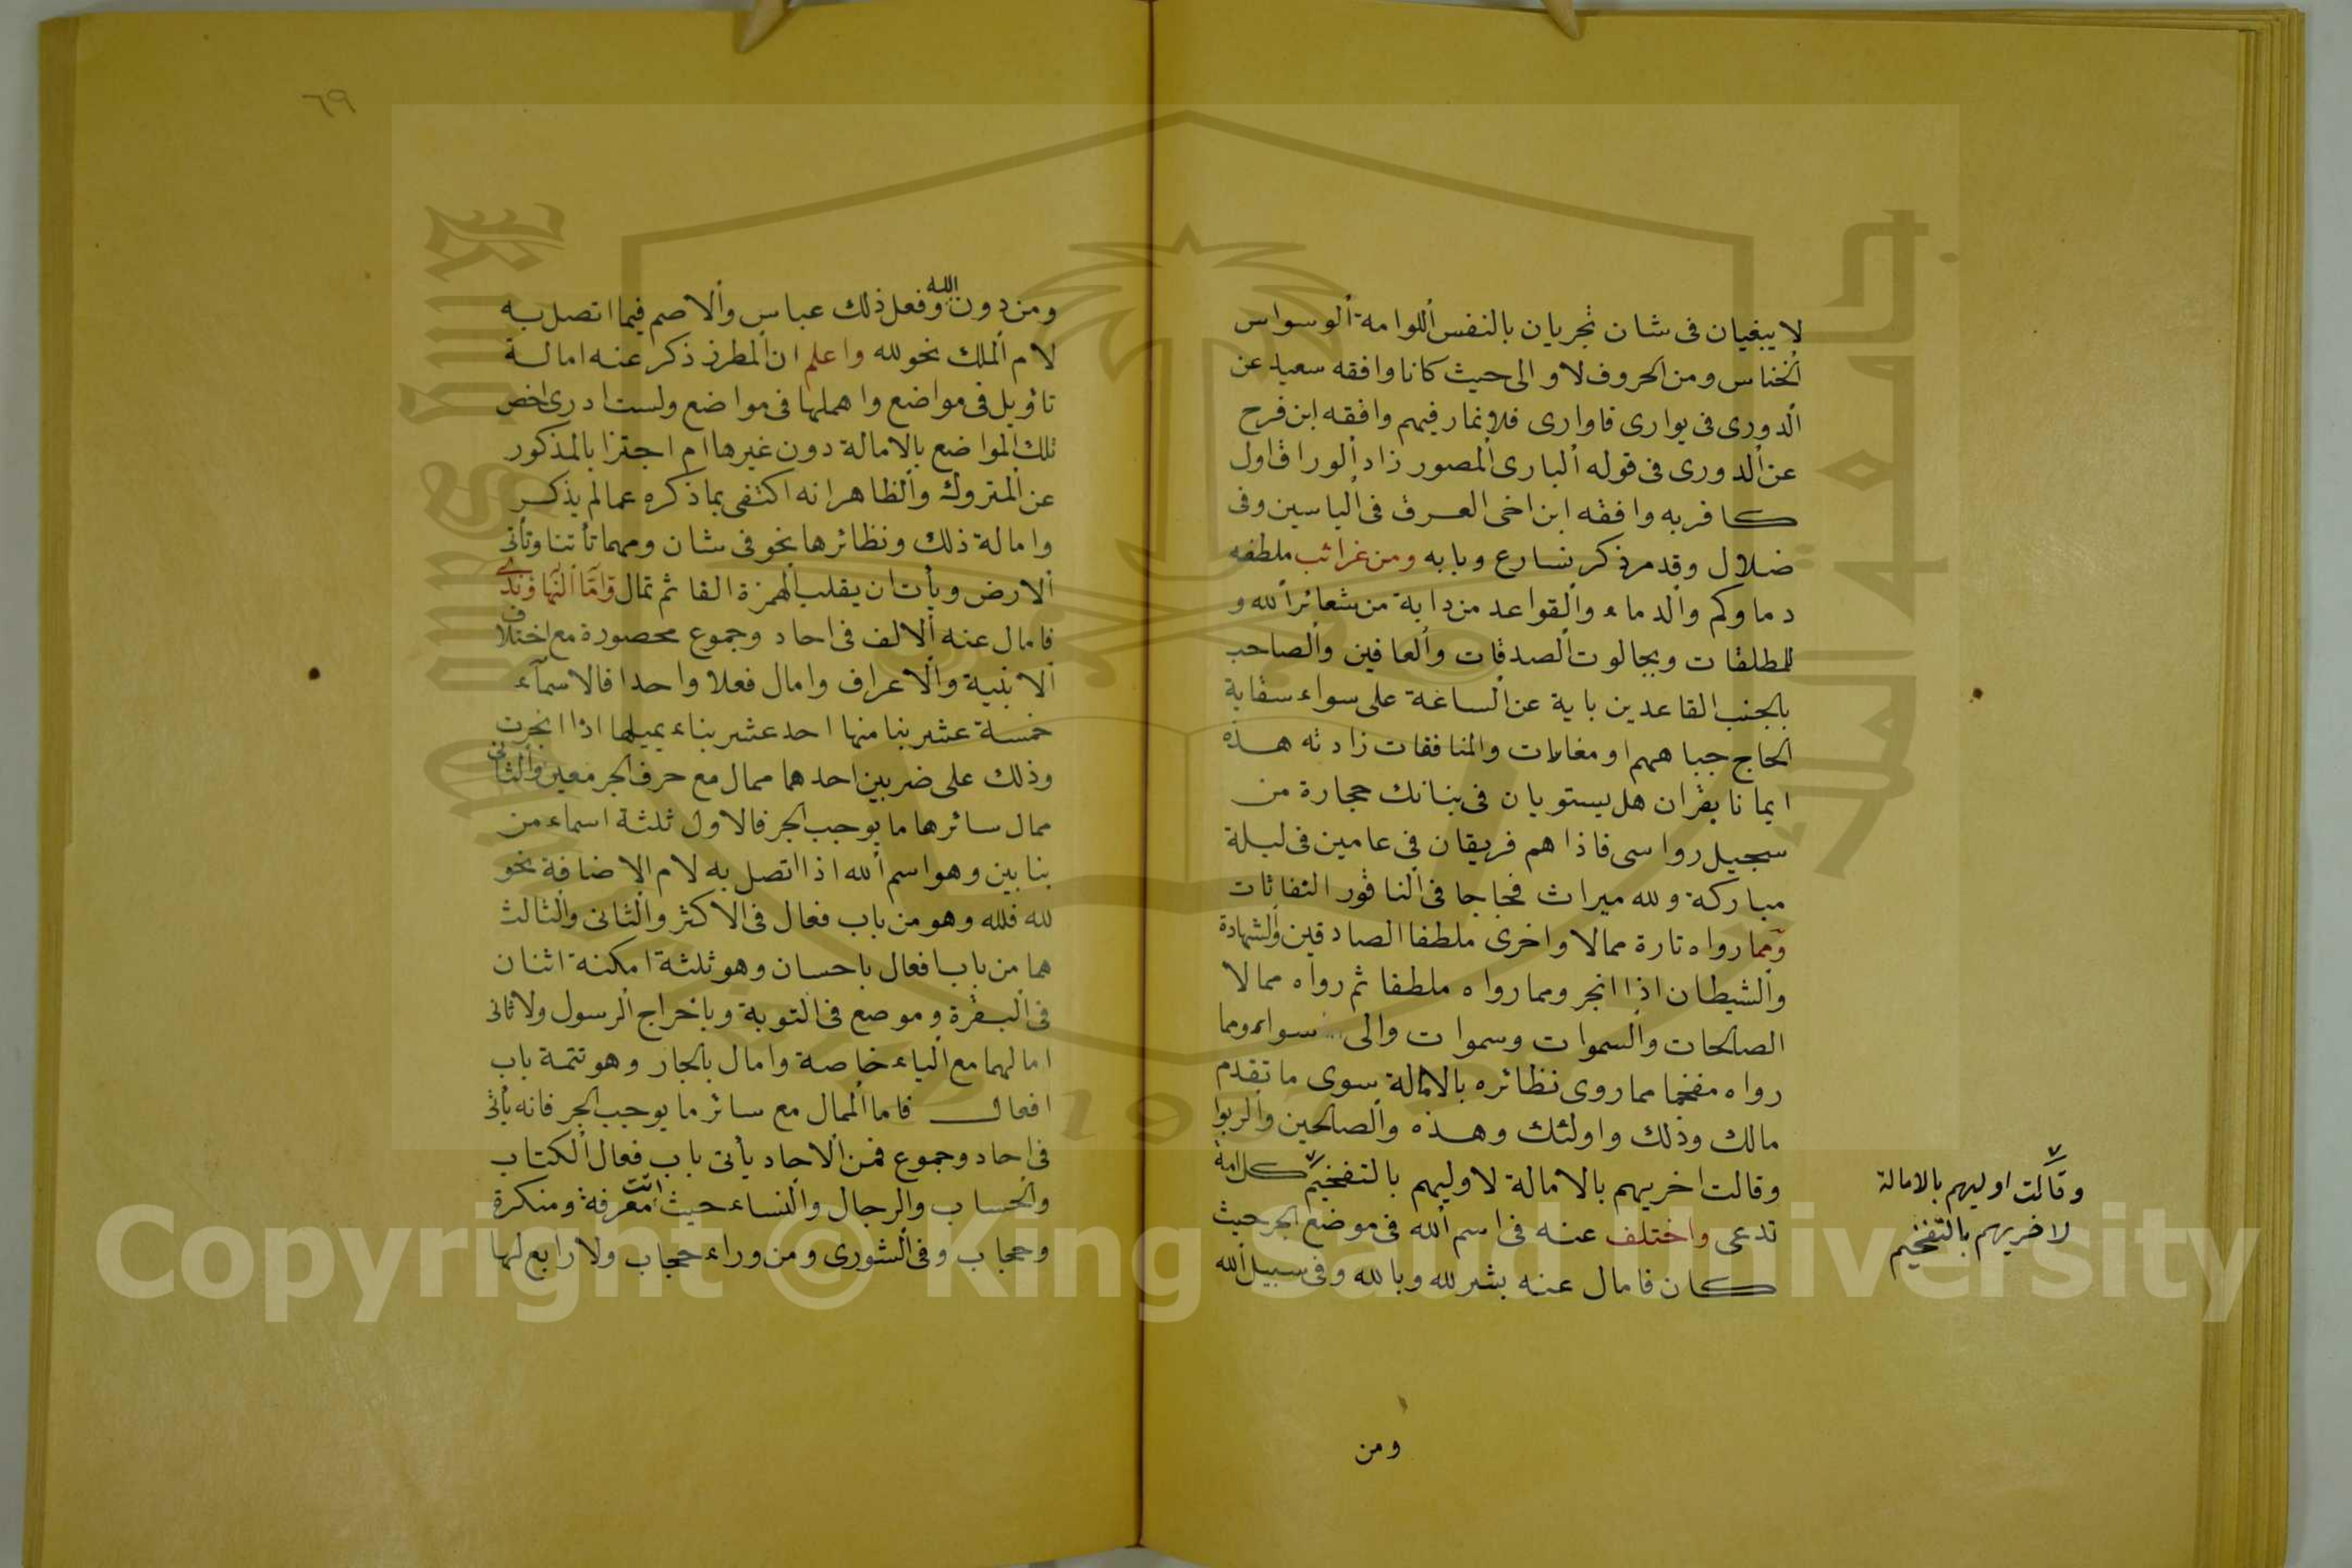 لا يبغيان فى شان تجريان بالنفس اللوامة الوسواس
الخناس ومن الحروف لا و الى حيث كانا وافقه سعيد عن
الدورى فى يوارى فاوارى فلا تمار فيهم وافقه ابن فرح
عن الدورى فى قوله البارى المصور زاد الوراق اول
كافر به وافقه ابن اخى العرق فى الياسين وفى
ضلال وقد مر ذكر نسارع وبابه ومن غرائب ملطفه
دماوكم والدماء والقواعد من دابة من شعائر الله و
للمطلقات وبجالوت الصدقات والعافين والصاحب
بالجنب القاعدين باية عن الساعة على سواء سقاية
الحاج جباههم او مغارات والمنافقات زادته هذه
ايمانا يقران هل يستويان فى بناتك حجارة من
سجيل رواسى فاذا هم فريقان فى عامين فى ليلة
مباركة ولله ميراث فجاجا فى الناقور النفاثات
ومما رواه تارة ممالا واخرى ملطفا الصادقين والشهادة
والشيطان اذا انجر ومما رواه ملطفا ثم رواه ممالا
الصالحات والسموات وسموات والى سواء ومما
رواه مفخما مما روى نظائره بالامالة سوى ما تقدم
مالك وذلك واولئك وهذه والصالحين والربوا
وقالت اخريهم بالامالة لاوليهم بالتفخيم كل امة
تدعى واختلف عنه فى اسم الله فى موضع الجر حيث
كان فامال عنه بشر لله وبالله وفى سبيل الله
وقالت اوليهم بالامالة
لاخريهم بالتفخيم
ومن
٦٩
ومن دون الله وفعل ذلك عباس والاصم فيما اتصل به
لام الملك نحو لله واعلم ان المطرز ذكر عنه امالة
تاويل فى مواضع واهملها فى مواضع ولست ادرى اخص
تلك المواضع بالامالة دون غيرها ام اجتزا بالمذكور
عن المتروك والظاهر انه اكتفى بما ذكره عما لم يذكر
وامالة ذلك ونظائرها نحو فى شان ومهما تأتنا وتأتى
الارض ويأت ان يقلب الهمزة الفا ثم تمال واما
فامال عنه الالف فى احاد وجموع محصورة مع اختلاف
الابنية والاعراف وامال فعلا واحدا فالاسمآء
خمسة عشر بنا منها احد عشر بناء يميلها اذا انجرت
وذلك على ضربين احدهما ممال مع حرف الجر معين والثانى
ممال سائرها ما يوجب الجر فالاول ثلثة اسماء من
بنابين وهو اسم الله اذا اتصل به لام الاضافة نحو
لله فلله وهو من باب فعال فى الاكثر والثانى والثالث
هما من باب افعال باحسان وهو ثلثة امكنة اثنان
فى البقرة وموضع فى التوبة وباخراج الرسول ولا ثانى
امالهما مع الياء خاصة وامال بالجار وهو تتمة باب
افعال فاما الممال مع سائر ما يوجب الجر فانه يأتى
فى احاد وجموع فمن الاحاد يأتى باب فعال الكتاب
والحساب والرجال والنساء حيث اتت معرفة ومنكرة
وحجاب وفى الشورى ومن وراء حجاب ولا رابع لها
Copyright © King Saud University